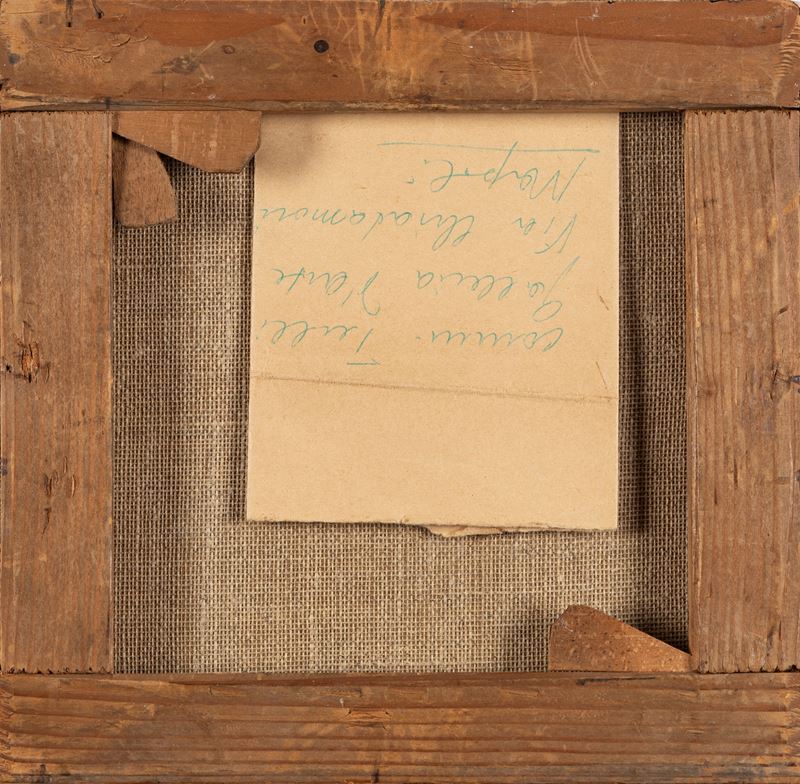 comm. Tulli
Galleria d'arte
Via Chiatamone
Napoli